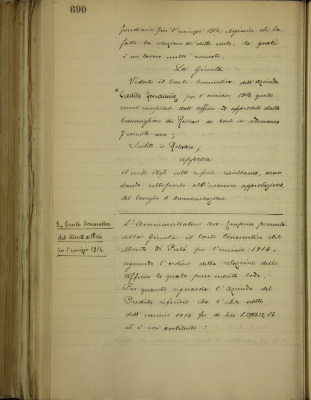 690
fondiario per l'esercizio 1914, elogiando chi ha
fatto la relazione di detto conto, la quale
è un lavoro molto accurato.
La Giunta
Veduto il Conto Consuntivo dell'Azienda
"Credito Fondiario" per l'esercizio 1914 quale
venne compilato dall'Ufficio ed approvato dalla
Commissione dei Revisori dei conti in adunanza
Sentito il Relatore;
approva
il conto stesso nelle sue finali risultanze, accor
dando sottoposto all'ulteriore approvazione
del Consiglio d'Amministrazione.
3_ Conto Consuntivo
del Monte di Pietà
per l'esercizio 1914.
L'Amministratore Avv. presenta
alla Giunta il conto Consuntivo del
Monte di Pietà per l'anno 1914,
seguendo l'ordine della relazione dello
Ufficio la quale pure merita lode.
Per quanto riguarda l'Azienda del
Credito riferisce che l'utile netto
dell'esercizio 1914 fu di lire
ed è così costituito: